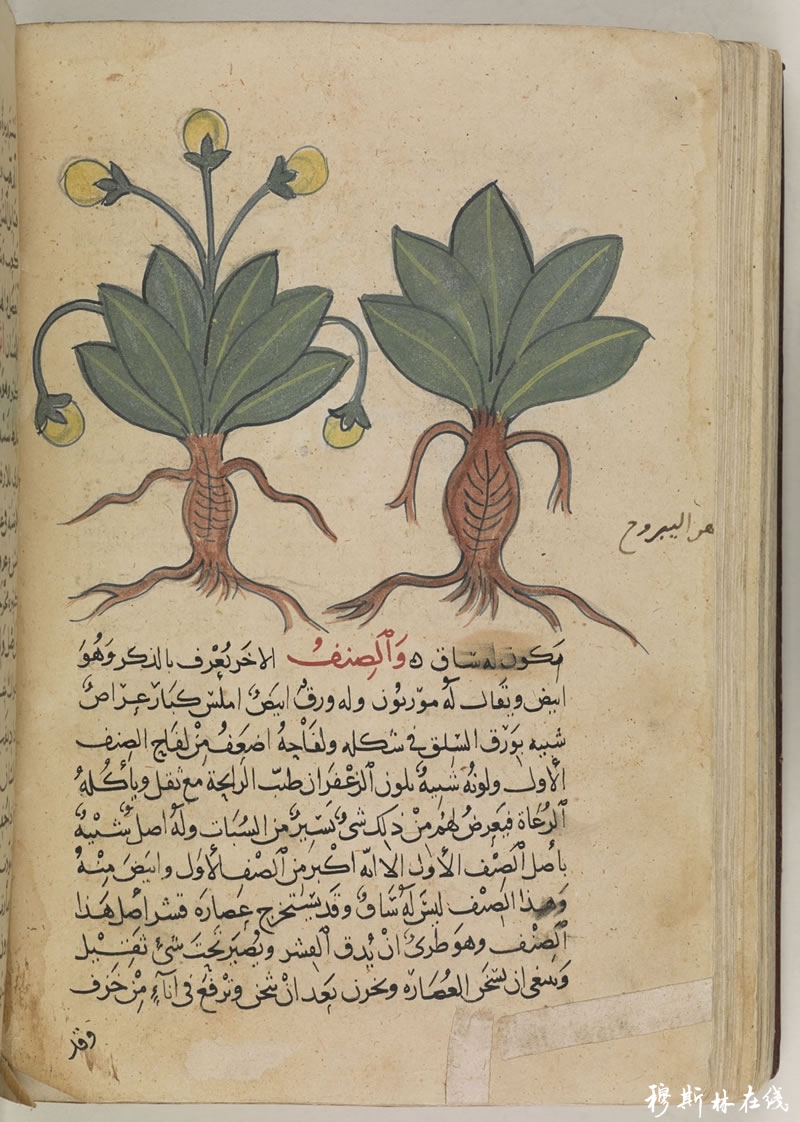 هو اليبروح
يكون له ساق ه وَٱلصِنفُ الاخر يُعْرف بالذكر وَهُوَ
ابيض ويقال لَهُ موريون وله ورقٌ ابيَضُ املس كبارٌ عِراضٌ
شبيه بوَرَق السِلق في شكله ولفاحُهُ اضعَفُ مِنْ لفاح الصِنف
الأول ولونُهُ شبيهٌ بلون الزعفران طيّب الرايحة مع ثقل ويأكُلُهُ
الرُعَاة فيَعِرضُ لهُم مِنْ ذلك شيٌ يَسيرٌ من السُبَات ولَهُ اصلٌ شَبيْهٌ
باصل الصِنْف الأول الا انه اكبر مِن الصِنف الأول وابيَضَ مِنْهُ
وَهذا الصِنْف ليسَ لَهُ سَاقٌ وقد يُستخرج عصارة قشر اصل هَذا
الصِنْف وهوَ طريٌ انْ يُدق القشر ويُصيّر تحتَ شيٍ ثقيْل
وَينبغي ان يسخن العُصارَة وتخزن بَعد انْ تثخن وترفع في انآءٍ مِنْ خزف
وقد
穆斯林在线